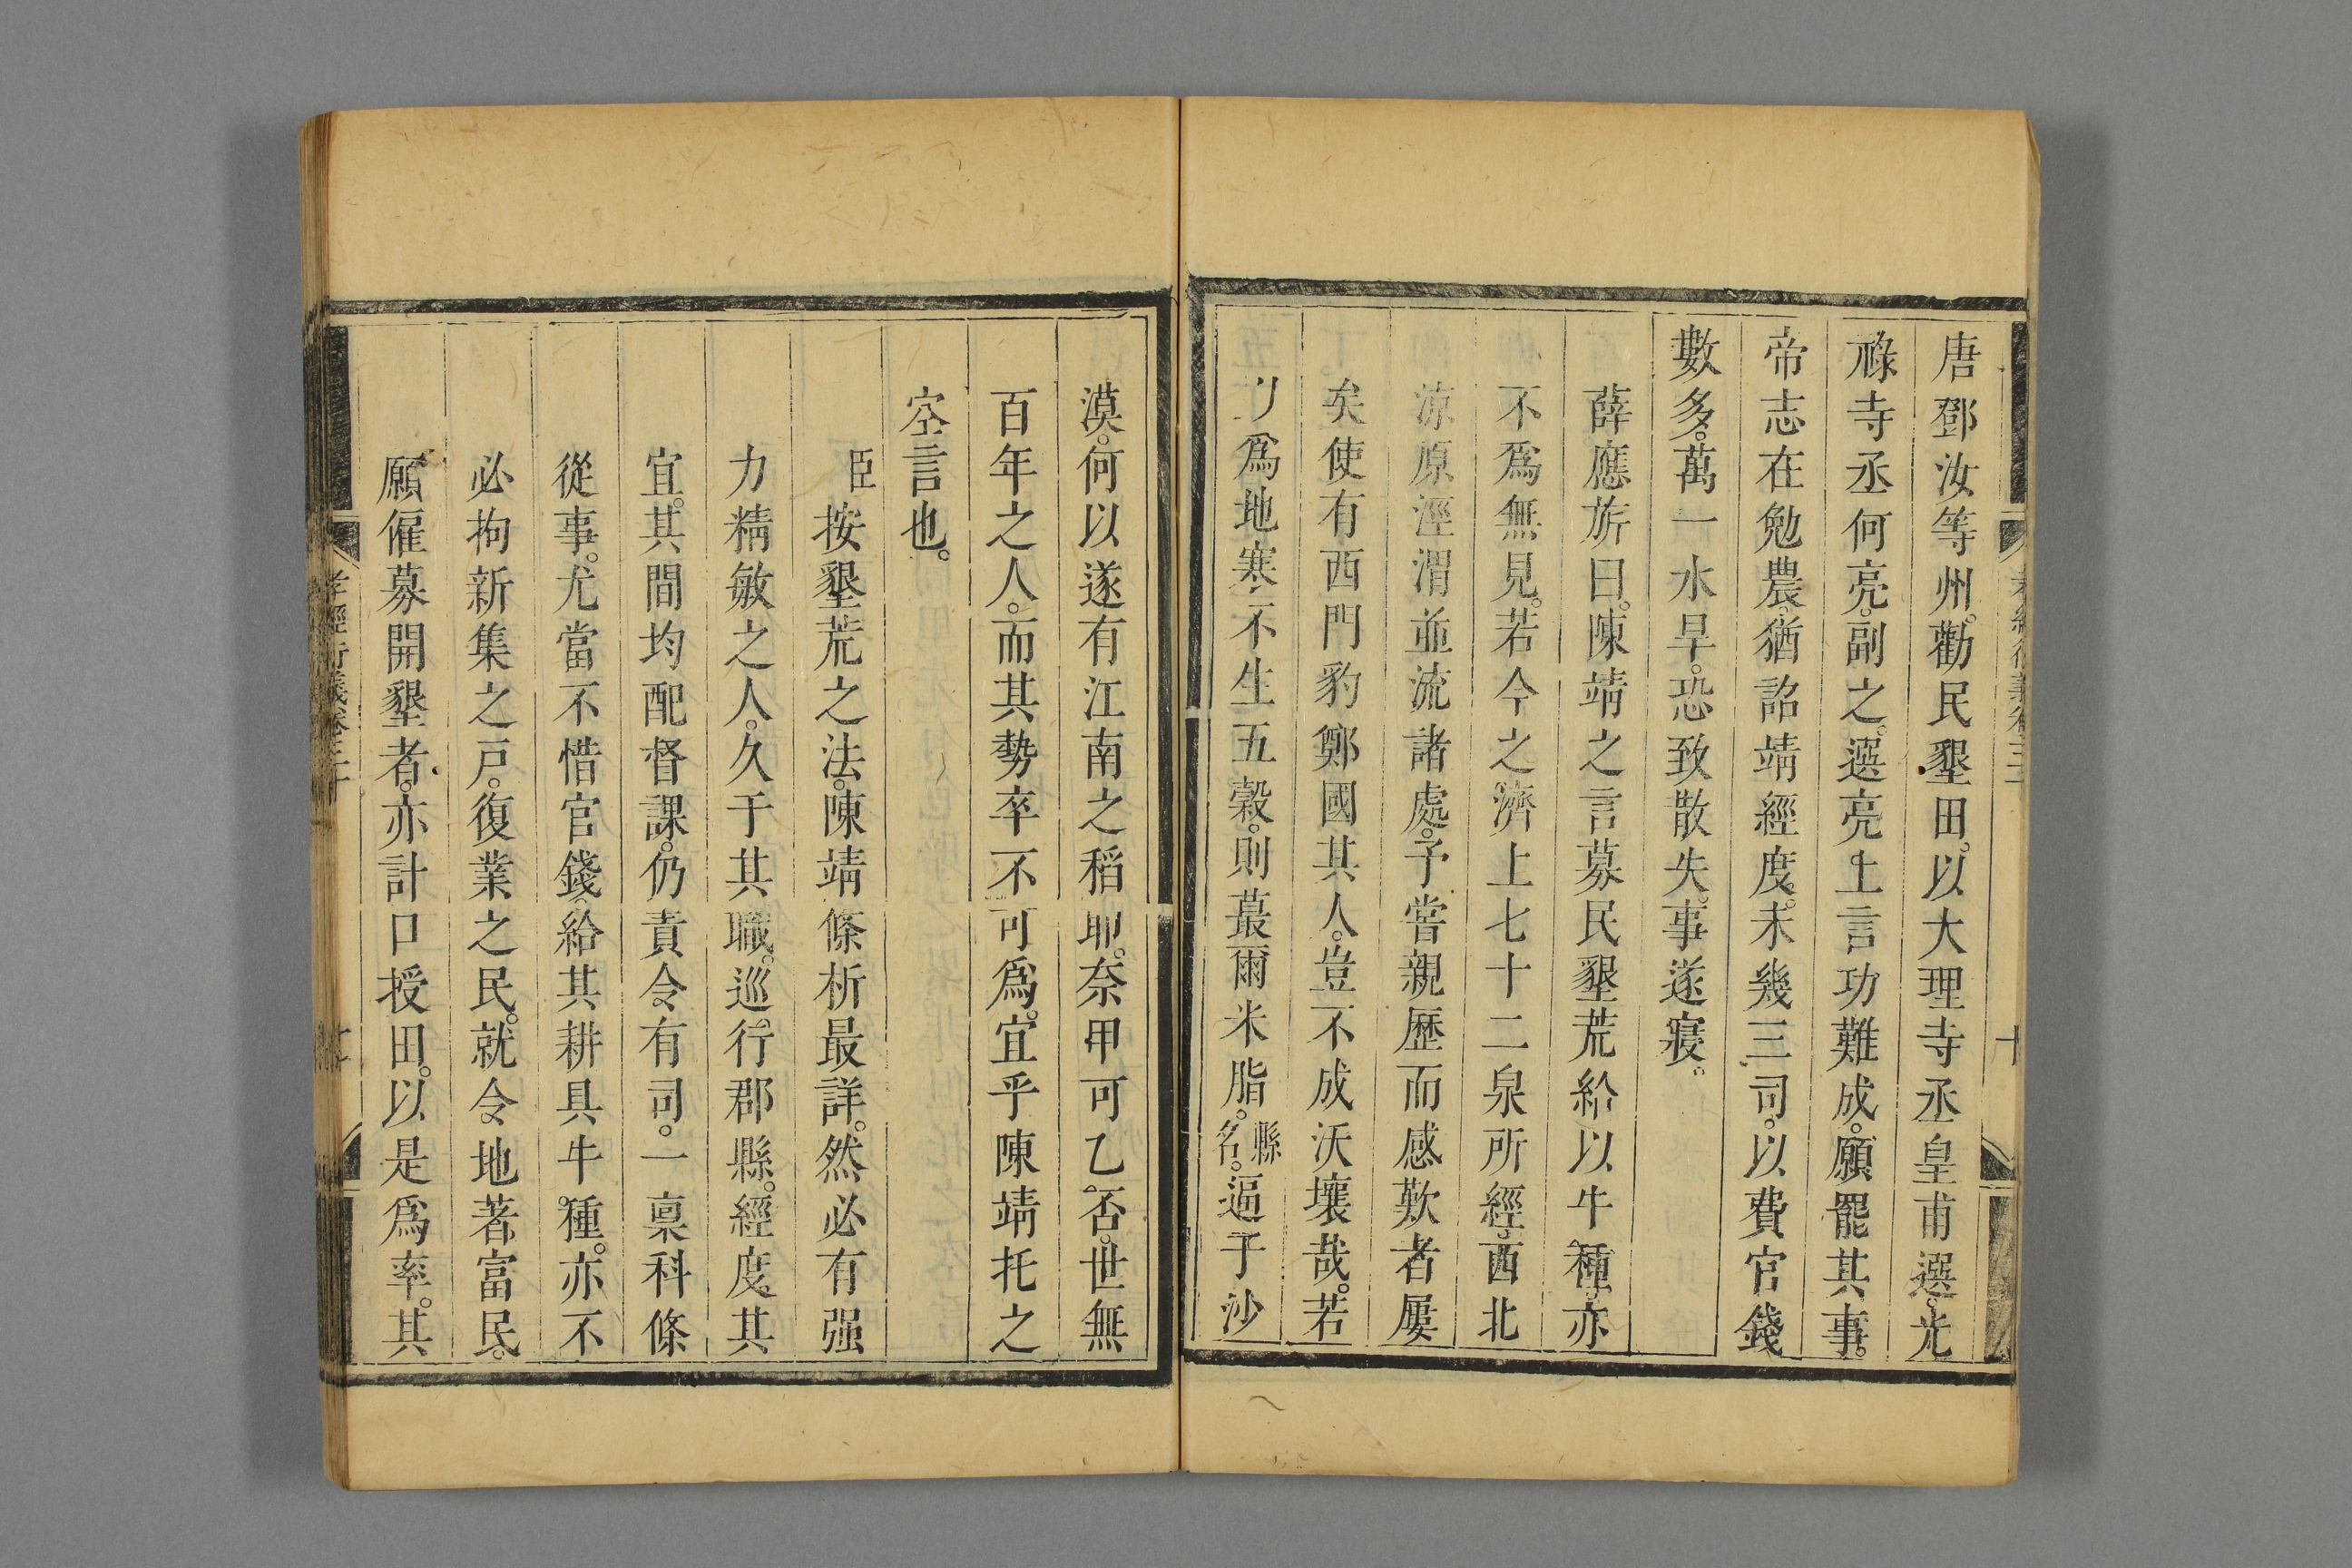 唐鄧汝等州。勸民墾田。以大理寺丞皇甫選。光
祿寺丞何亮。副之。選亮上言功難成。願罷其事。
帝志在勉農。猶詔靖經度。未幾三司。以費官錢
數多。萬一水旱。恐致散失。事遂寢。
薛應旂曰。陳靖之言募民墾荒給以牛種。亦
不爲無見。若今之濟上七十二泉所經。西北
涼原涇渭並流諸處。予嘗親歷而感歎者屢
矣使有西門豹鄭國其人。豈不成沃壤哉。若
以爲地寒不生五穀。則蕞爾米脂。縣名。逼于沙
漠。何以遂有江南之稻耶。奈甲可乙否。世無
百年之人。而其勢卒不可爲。宜乎陳靖托之
空言也。
臣按墾荒之法。陳靖條析最詳。然必有强
力精敏之人。久于其職。巡行郡縣。經度其
宜。其間均配督課。仍責令有司。一稟科條
從事。尤當不惜官錢。給其耕具牛種。亦不
必拘新集之戸。復業之民。就令地著富民。
願僱募開墾者。亦計口授田。以是爲率。其
孝經衍義卷三十